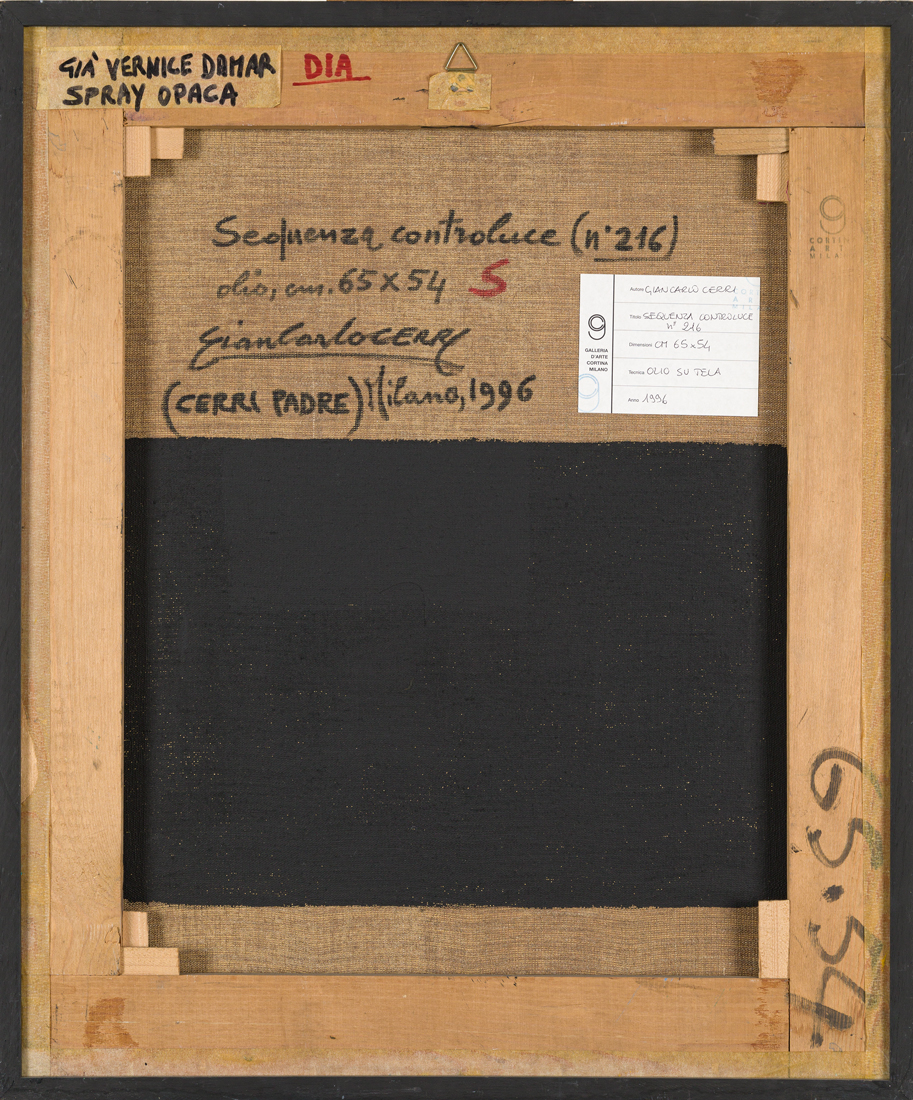 GIÀ VERNICE DAMAR
SPRAY OPACA
DIA
Sequenza controluce (n° 216)
olio, cm. 65 X 54 S
GianCarloCERRI
(CERRI PADRE) Milano, 1996
9
GALLERIA
D'ARTE
CORTINA
MILANO
Autore GIANCARLO CERRI
Titolo SEQUENZA CONTROLUCE
n° 216
Dimensioni CM 65x54
Tecnica OLIO SU TELA
Anno 1996
9
CORTINA
AR
MILA
65.54